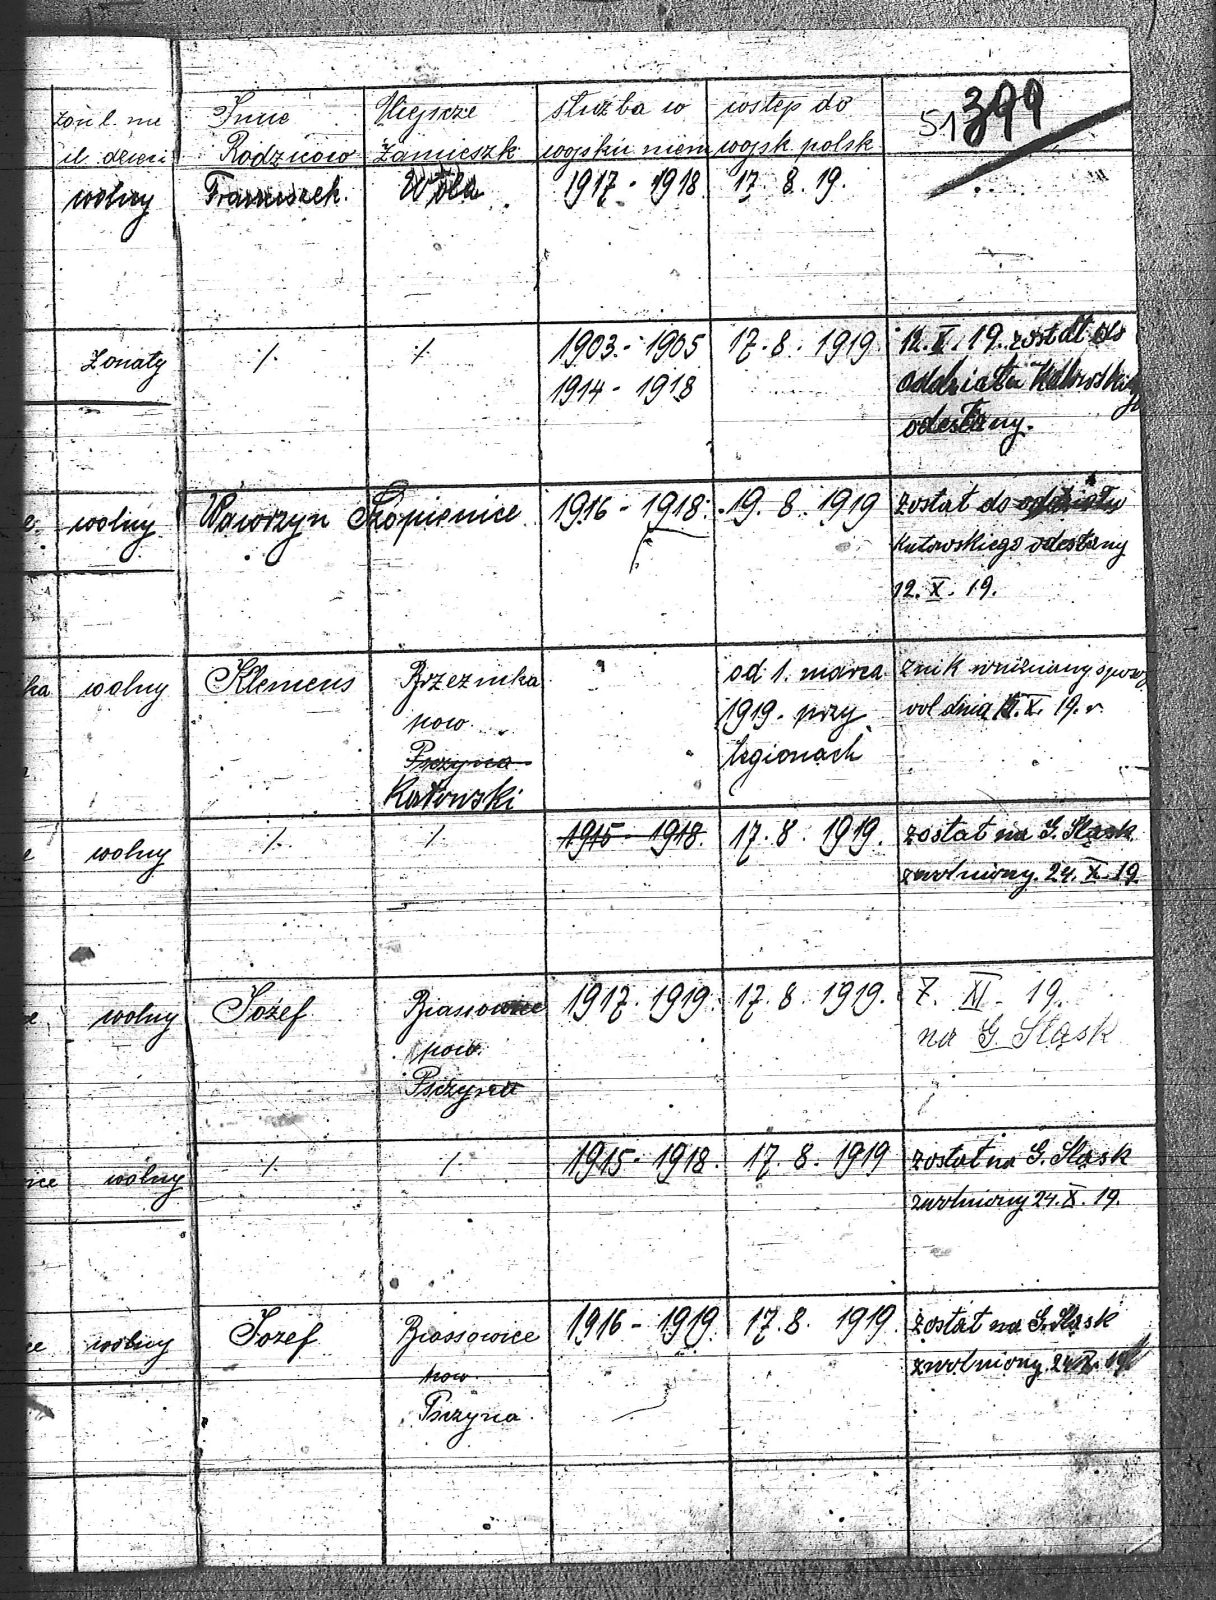 żon l. nie Imie Miejscze służba w wstęp do 51 399
il dzieci Rodziców zamieszk wojsku niem wojsk polsk
wolny Franciszek. Wola 1917 - 1918 17. 8. 19.
żonaty /. /. 1903. - 1905 17. 8. 1919 12. X. 19. został do
1914 - 1918 oddziału
odesłany.
wolny Wawrzyn Szopienice 1916 - 1918. 19. 8. 1919 został do oddziału
Katowskiego odesłany
12. X. 19.
ka wolny Klemens Brzezinka od 1. marca znik
pow. 1919. przy dnia X. 19. r.
Pszczyna legionach
Katowski
wolny /. /. 1915 - 1918. 17. 8. 1919. został na G. Śląsk
zwolniony. 24. X. 19.
wolny Jozef Biassowice 1917. 1919. 17. 8. 1919. 7. XI. 19.
pow. na G. Sląsk
Psczyna
ice wolny /. /. 1915 - 1918. 17. 8. 1919 został na G. Sląsk
zwolniony 24. X. 19.
ce wolny Jozef Biassowice 1916 - 1919. 17. 8. 1919. został na G. Sląsk
pow. zwolniony. 24 X. 19
Psczyna.